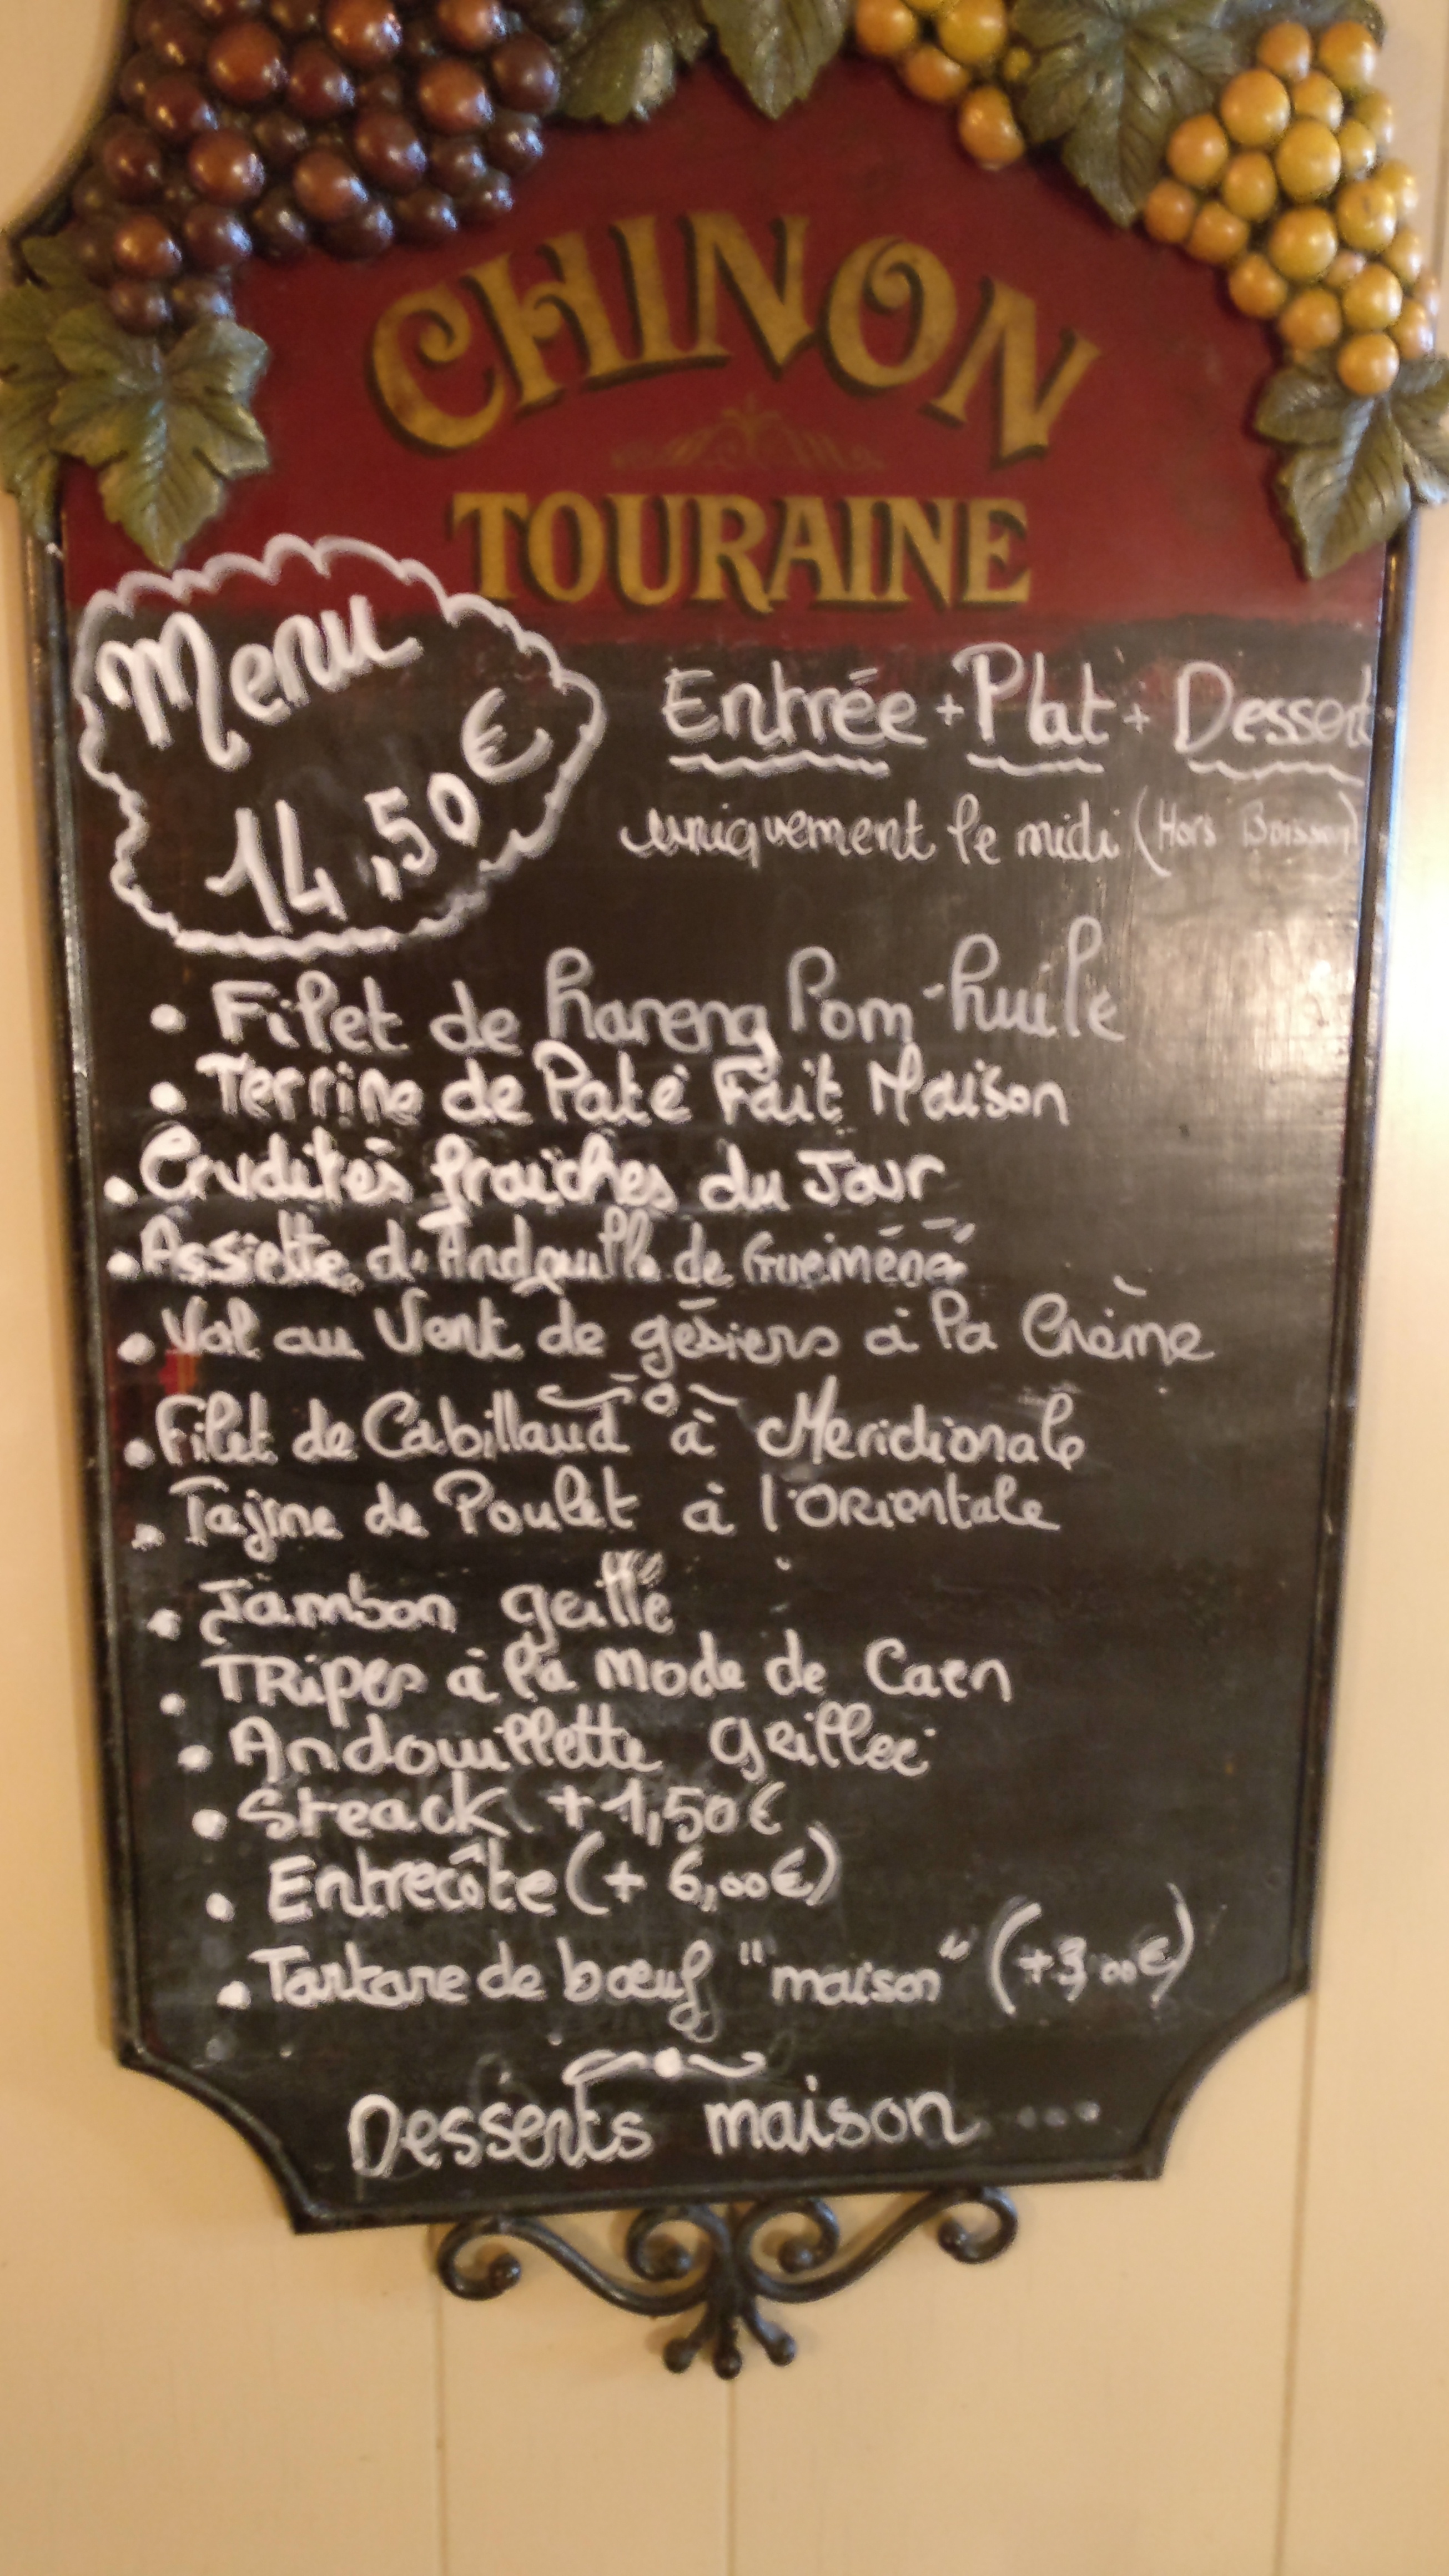 CHINON
TOURAINE
Menu
14,50 €
Entrée + Plat + Dessert
uniquement le midi (Hors Boisson)
• Filet de hareng Pom-huile
• Terrine de Paté Fait Maison
• Crudités fraiches du Jour
• Assiette d'Andouille de Guéméné
• Vol au Vent de gésiers à la Crème
• Filet de Cabillaud à Meridionale
• Tajine de Poulet à l'Orientale
• Jambon grillé
• Tripes à la mode de Caen
• Andouillette grillée
• Steack +1,50€
• Entrecôte (+ 6,00€)
• Tartare de bœuf "maison" (+3,00€)
Desserts maison ...